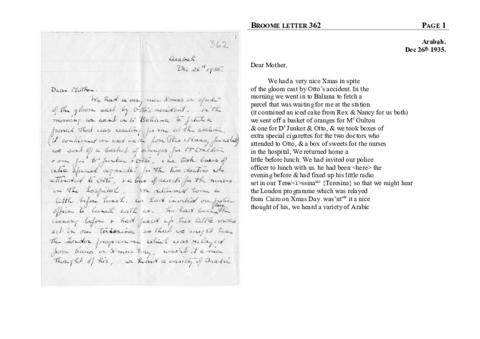 362
Arabah.
Dec 26th 1935.
Dear Mother.
We had a very nice Xmas in spite
of the gloom cast by Otto's accident. In the
morning we went in to Baliana to fetch a
parcel that was waiting for me at the station
(it contained an iced cake from Rex & Nancy for us both)
we sent off a basket of oranges for Mr Oulton
& one for Dr Junker & Otto, & we took boxes of
extra special cigarettes for the two doctors who
attended to Otto, & a box of sweets for the nurses
in the hospital, We returned home a
little before lunch. we had invited our police
officer to lunch with us. he had been here the
evening before & had fixed up his little radio
set in our Teresina so that we might hear
the London programme which was relayed
from Cairo on Xmas Day. wasn't it a nice
thought of his, we heard a variety of Arabic
BROOME LETTER 362 PAGE 1
Arabah.
Dec 26th 1935.
Dear Mother,
We had a very nice Xmas in spite
of the gloom cast by Otto's accident. In the
morning we went in to Baliana to fetch a
parcel that was waiting for me at the station.
(it contained an iced cake from Rex & Nancy for us both)
we sent off a basket of oranges for Mr Oulton
& one for Dr Junker & Otto, & we took boxes of
extra special cigarettes for the two doctors who
attended to Otto, & a box of sweets for the nurses
in the hospital, We returned home a
little before lunch. We had invited our police
officer to lunch with us. he had been <here> the
evening before & had fixed up his little radio
(Teresina) so that we might hear
the London programme which was relayed
from Cairo on Xmas Day. was'nt it a nice
thought of his, we heard a variety of Arabic